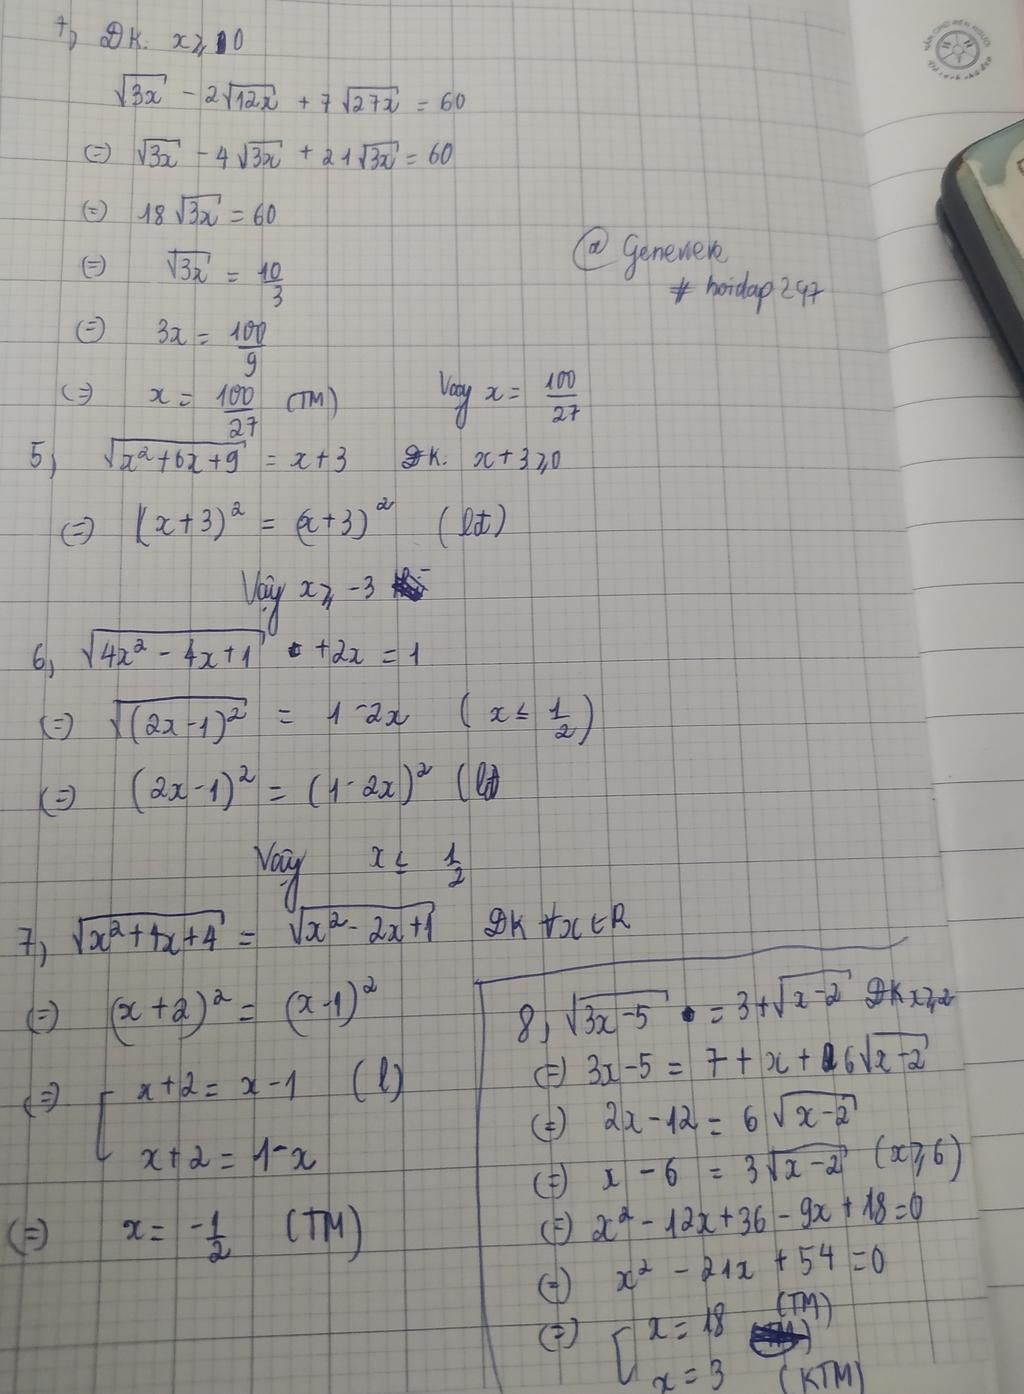 +, ĐK. x ≥ 0
√3x - 2√12x + 7√27x = 60
(=) √3x - 4√3x + 21√3x = 60
(=) 18√3x = 60
(=) √3x = 10/3
@ Genenek
# hoidap247
(=) 3x = 100/9
(=) x = 100/27 (TM) Vậy x = 100/27
5, √x²+6x+9 = x+3 ĐK. x+3 ≥ 0
(=) (x+3)² = (x+3)² (lđ)
Vậy x ≥ -3
6, √4x² - 4x+1 +2x = 1
(=) √(2x-1)² = 1-2x (x ≤ 1/2)
(=) (2x-1)² = (1-2x)² (lđ
Vậy x ≤ 1/2
7, √x²+4x+4 = √x²-2x+1 ĐK ∀x ∈ R
(=) (x+2)² = (x-1)²
(=) [ x+2 = x-1 (l)
x+2 = 1-x
(=) x = -1/2 (TM)
8, √3x-5 = 3+√x-2 ĐK x ≥ 2
(=) 3x-5 = 7+x+6√x-2
(=) 2x-12 = 6√x-2
(=) x - 6 = 3√x-2 (x ≥ 6)
(=) x² - 12x+36 - 9x+18 = 0
(=) x² - 21x + 54 = 0
(=) [ x = 18 (TM)
x = 3 (KTM)